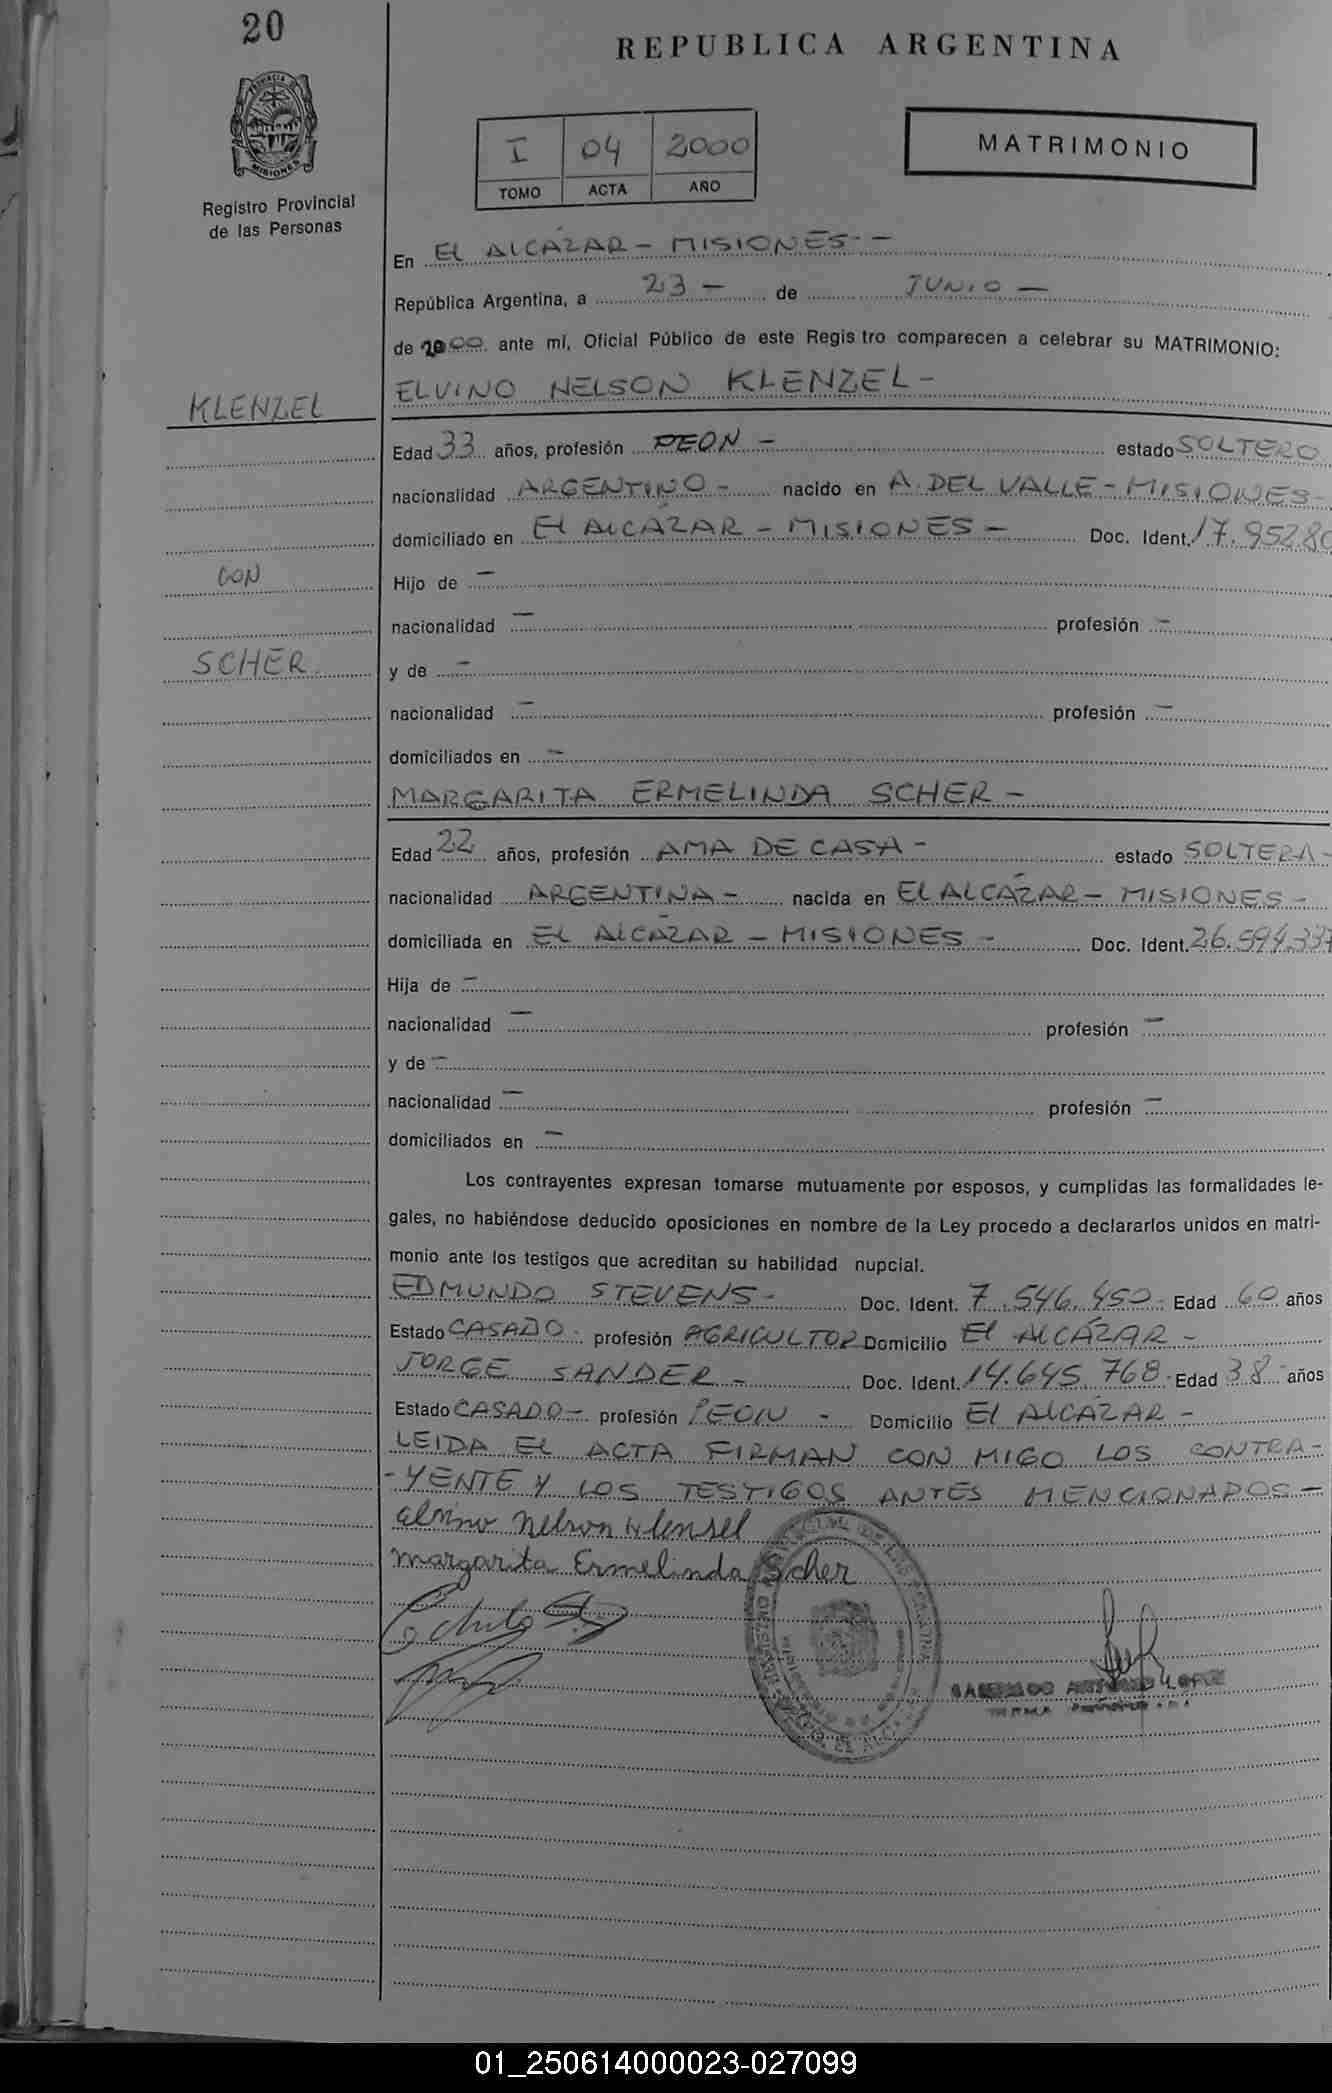 20
REPUBLICA ARGENTINA
PROVINCIA DE
MISIONES
Registro Provincial
de las Personas
I 04 2000
TOMO ACTA AÑO
MATRIMONIO
En EL ALCÁZAR - MISIONES - -
República Argentina, a 23 - de JUNIO -
de 2000 ante mí, Oficial Público de este Regis tro comparecen a celebrar su MATRIMONIO:
KLENZEL
ELVINO NELSON KLENZEL -
Edad 33 años, profesión PEON - estado SOLTERO
nacionalidad ARGENTINO - nacido en A. DEL VALLE - MISIONES -
domiciliado en El ALCÁZAR - MISIONES - Doc. Ident. 17.952.80
CON
Hijo de -
nacionalidad - profesión -
SCHER
y de -
nacionalidad - profesión -
domiciliados en -
MARGARITA ERMELINDA SCHER -
Edad 22 años, profesión AMA DE CASA - estado SOLTERA -
nacionalidad ARGENTINA - nacida en El ALCÁZAR - MISIONES -
domiciliada en EL AlCÁZAR - MISIONES - Doc. Ident. 26.594.337
Hija de -
nacionalidad - profesión -
y de -
nacionalidad - profesión -
domiciliados en -
Los contrayentes expresan tomarse mutuamente por esposos, y cumplidas las formalidades le-
gales, no habiéndose deducido oposiciones en nombre de la Ley procedo a declararlos unidos en matri-
monio ante los testigos que acreditan su habilidad nupcial.
EDMUNDO STEVENS - Doc. Ident. 7.546.450 - Edad 60 años
Estado CASADO - profesión AGRICULTOR Domicilio El AlCÁZAR -
JORGE SANDER - Doc. Ident. 14.645.768 - Edad 38 - años
Estado CASADO - profesión PEON - Domicilio El AlCÁZAR -
LEIDA EL ACTA FIRMAN CON MIGO LOS CONTRA-
- YENTE Y LOS TESTIGOS ANTES MENCIONADOS -
Elvino Nelson Klensel
Margarita Ermelinda Scher
01_250614000023-027099